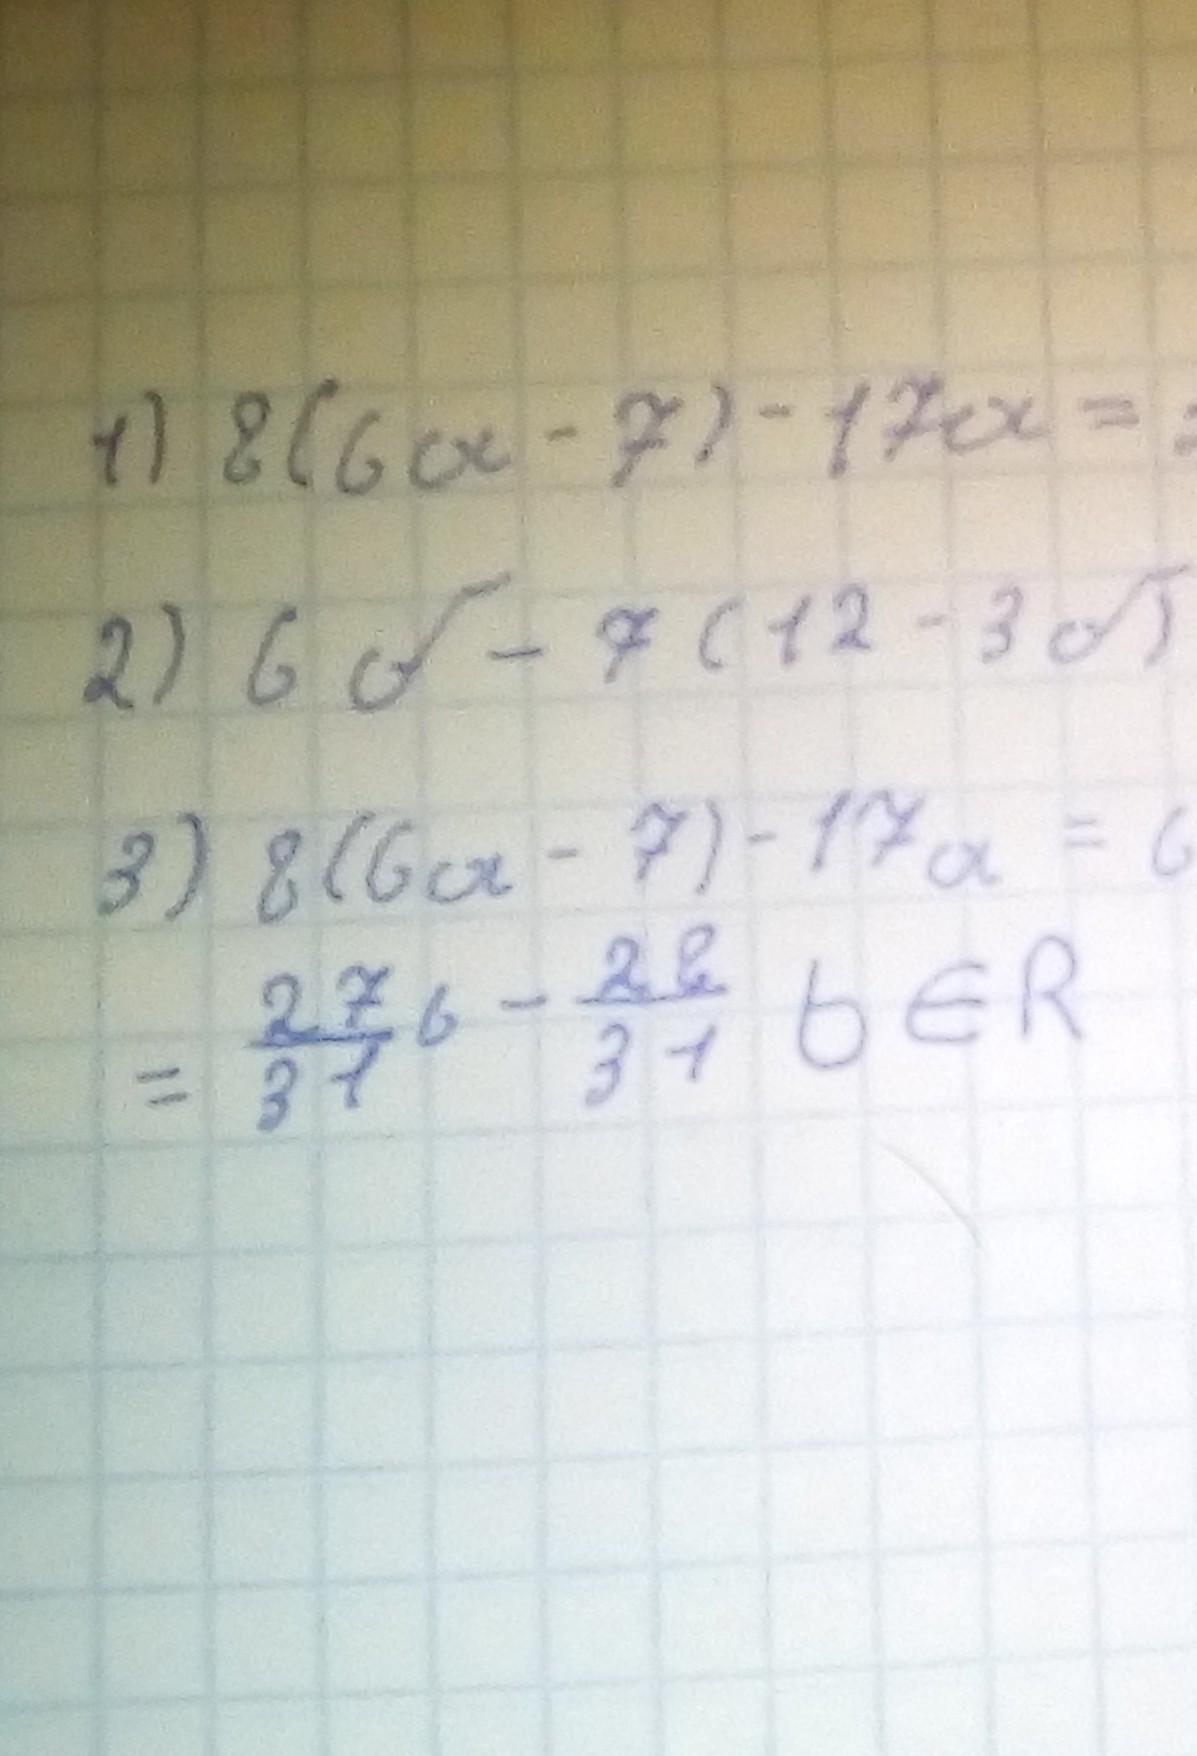 1) 8(6a - 7) - 17a =
2) 6б - 7(12 - 3б)
3) 8(6a - 7) - 17a = 6
= 27/31 б - 28/31 б ∈ R